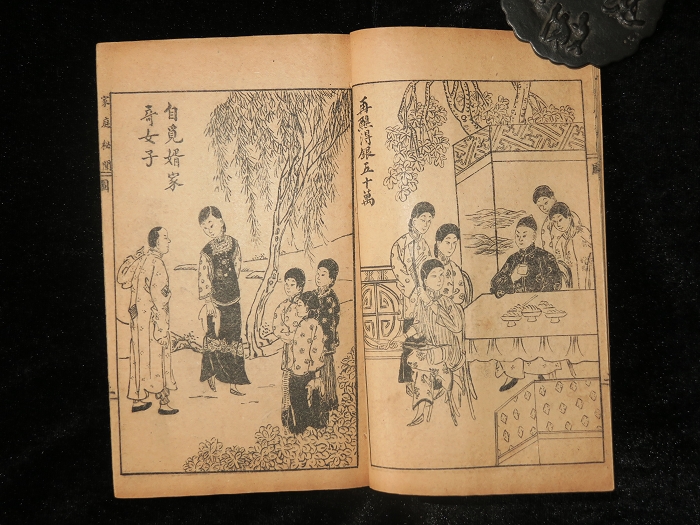 再醮得銀五十萬
自覓婿家
奇女子
家庭秘聞 圖